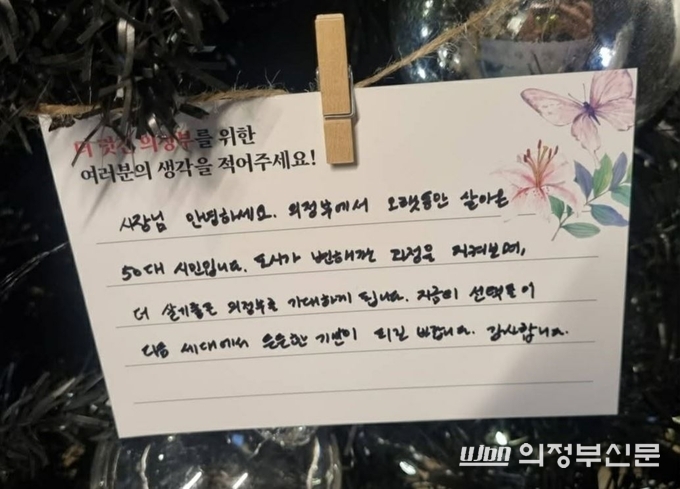 더 멋진 의정부를 위한
여러분의 생각을 적어주세요!
시장님 안녕하세요. 의정부에서 오랫동안 살아온
50대 시민입니다. 도시가 변해가는 과정을 지켜보며,
더 살기좋은 의정부를 기대하게 됩니다. 지금의 선택들이
다음 세대에서 든든한 기반이 되길 바랍니다. 감사합니다.
ujbn 의정부신문